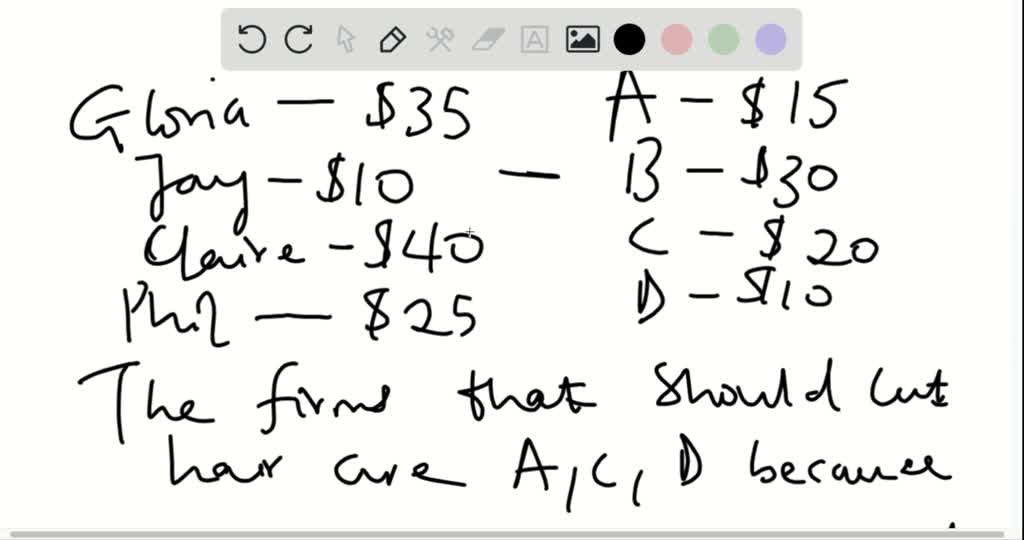 Gloria — $35 A – $15
Jay – $10 — B – $30
Claire – $40 C – $20
Phil — $25 D – $10
The firms that should cut
hair are A, C, D because